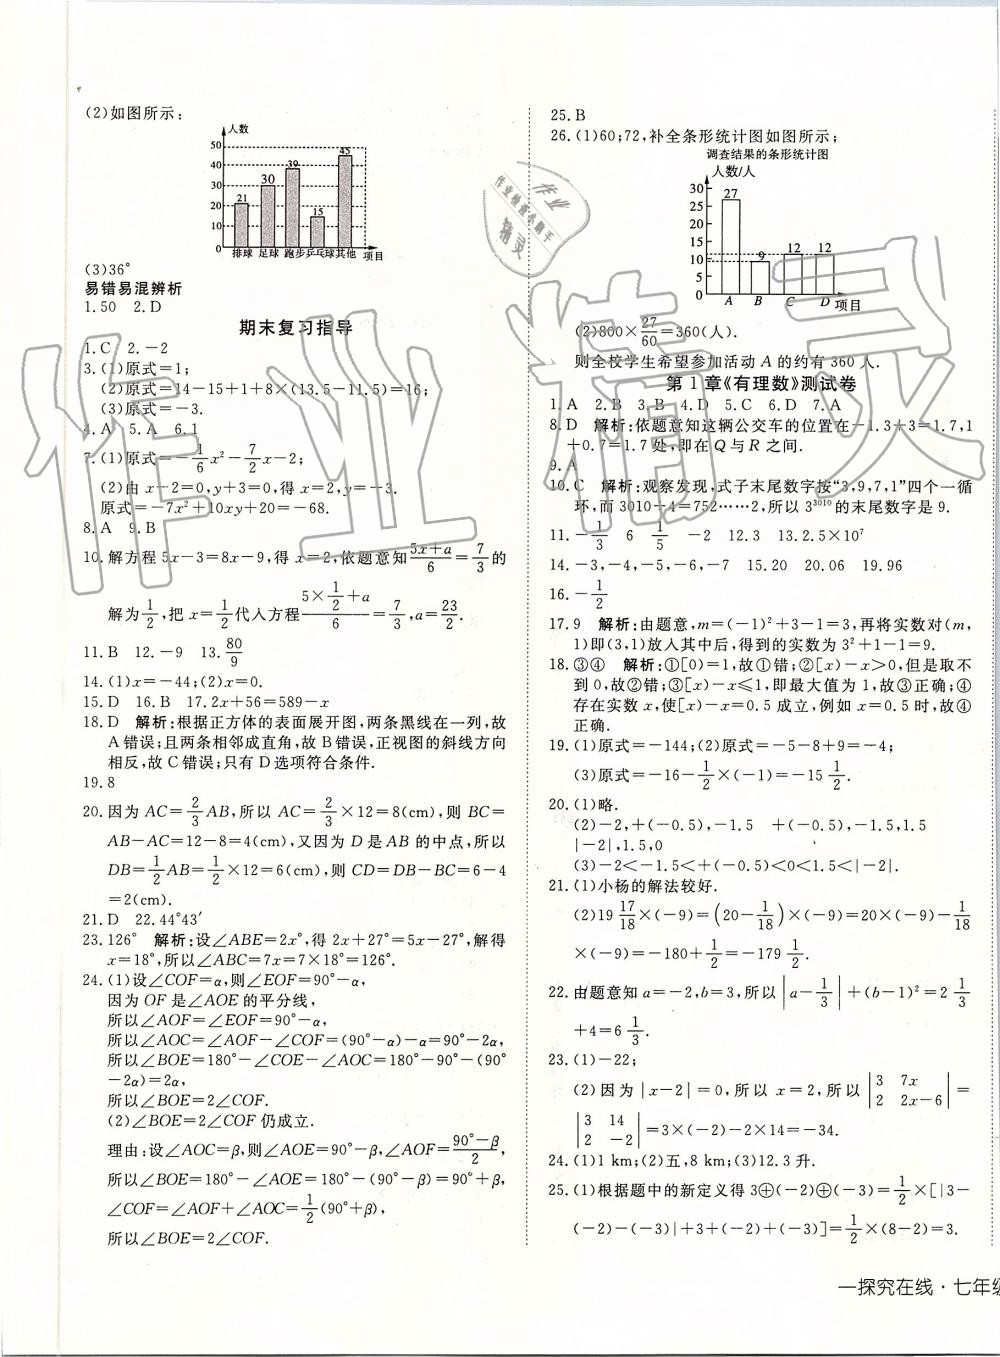 (2)如图所示:
人数
50
40
30
20
10
0
21
30
39
15
45
排球 足球 跑步 乒乓球 其他 项目
(3)36°
易错易混辨析
1.50 2.D
期末复习指导
1.C 2.-2
3.(1)原式=1;
(2)原式=14-15+1+8×(13.5-11.5)=16;
(3)原式=-3.
4.A 5.A 6.1
7.(1)原式=-1/6x²-7/2x-2;
(2)由 x-2=0,y+3=0,得 x=2,y=-3.
原式=-7x²+10xy+20=-68.
8.A 9.B
10.解方程 5x-3=8x-9,得 x=2,依题意知(5x+a)/6=7/3的
解为1/2,把 x=1/2代人方程(5×1/2+a)/6=7/3,a=23/2.
11.B 12.-9 13.80/9
14.(1)x=-44;(2)x=0.
15.D 16.B 17.2x+56=589-x
18.D 解析:根据正方体的表面展开图,两条黑线在一列,故
A错误;且两条相邻成直角,故B错误,正视图的斜线方向
相反,故C错误;只有D选项符合条件.
19.8
20.因为 AC=2/3AB,所以 AC=2/3×12=8(cm),则 BC=
AB-AC=12-8=4(cm),又因为 D 是 AB 的中点,所以
DB=1/2AB=1/2×12=6(cm),则 CD=DB-BC=6-4
=2(cm).
21.D 22.44°43′
23.126° 解析:设∠ABE=2x°,得 2x+27°=5x-27°,解得
x=18°,所以∠ABC=7x=7×18°=126°.
24.(1)设∠COF=α,则∠EOF=90°-α,
因为 OF 是∠AOE 的平分线,
所以∠AOF=∠EOF=90°-α,
所以∠AOC=∠AOF-∠COF=(90°-α)-α=90°-2α,
所以∠BOE=180°-∠COE-∠AOC=180°-90°-(90°
-2α)=2α,
所以∠BOE=2∠COF.
(2)∠BOE=2∠COF 仍成立.
理由:设∠AOC=β,则∠AOE=90°-β,∠AOF=(90°-β)/2,
所以∠BOE=180°-∠AOE=180°-(90°-β)=90°+β,
∠COF=∠AOF+∠AOC=1/2(90°+β),
所以∠BOE=2∠COF.
25.B
26.(1)60;72,补全条形统计图如图所示;
调查结果的条形统计图
人数/人
30
25
20
15
10
5
0
27
9
12
12
A B C D 项目
(2)800×27/60=360(人).
则全校学生希望参加活动 A 的约有 360 人.
第 1 章《有理数》测试卷
1.A 2.B 3.B 4.D 5.C 6.D 7.A
8.D 解析:依题意知这辆公交车的位置在-1.3+3=1.7,1
+0.7=1.7 处,即在 Q 与 R 之间.
9.A
10.C 解析:观察发现,式子末尾数字按“3,9,7,1”四个一循
环,而 3010÷4=752……2,所以 3³⁰¹⁰的末尾数字是 9.
11.-1/3 6 1/5 -2 12.3 13.2.5×10⁷
14.-3,-4,-5,-6,-7 15.20 20.06 19.96
16.-1/2
17.9 解析:由题意,m=(-1)²+3-1=3,再将实数对(m,
1)即(3,1)放人其中后,得到的实数为 3²+1-1=9.
18.③④ 解析:①[0)=1,故①错;②[x)-x>0,但是取不
到 0,故②错;③[x)-x≤1,即最大值为 1,故③正确;④
存在实数 x,使[x)-x=0.5 成立,例如 x=0.5 时,故④
正确.
19.(1)原式=-144;(2)原式=-5-8+9=-4;
(3)原式=-16-1/2×(-1)=-15 1/2.
20.(1)略.
(2)-2,+(-0.5),-1.5 +(-0.5),-1.5,1.5
|-2|,1.5,0
(3)-2<-1.5<+(-0.5)<0<1.5<|-2|.
21.(1)小杨的解法较好.
(2)19 17/18×(-9)=(20-1/18)×(-9)=20×(-9)-1/18
×(-9)=-180+1/2=-179 1/2.
22.由题意知 a=-2,b=3,所以|a-1/3|+(b-1)²=2 1/3
+4=6 1/3.
23.(1)-22;
(2)因为|x-2|=0,所以 x=2,所以|3 7x
2 2x-6|=
|3 14
2 -2|=3×(-2)-2×14=-34.
24.(1)1 km;(2)五,8 km;(3)12.3 升.
25.(1)根据题中的新定义得 3⊕(-2)⊕(-3)=1/2×[|3-
(-2)-(-3)|+3+(-2)+(-3)]=1/2×(8-2)=3.
一探究在线·七年级
作业精灵
作业
作业检查小助手
精灵